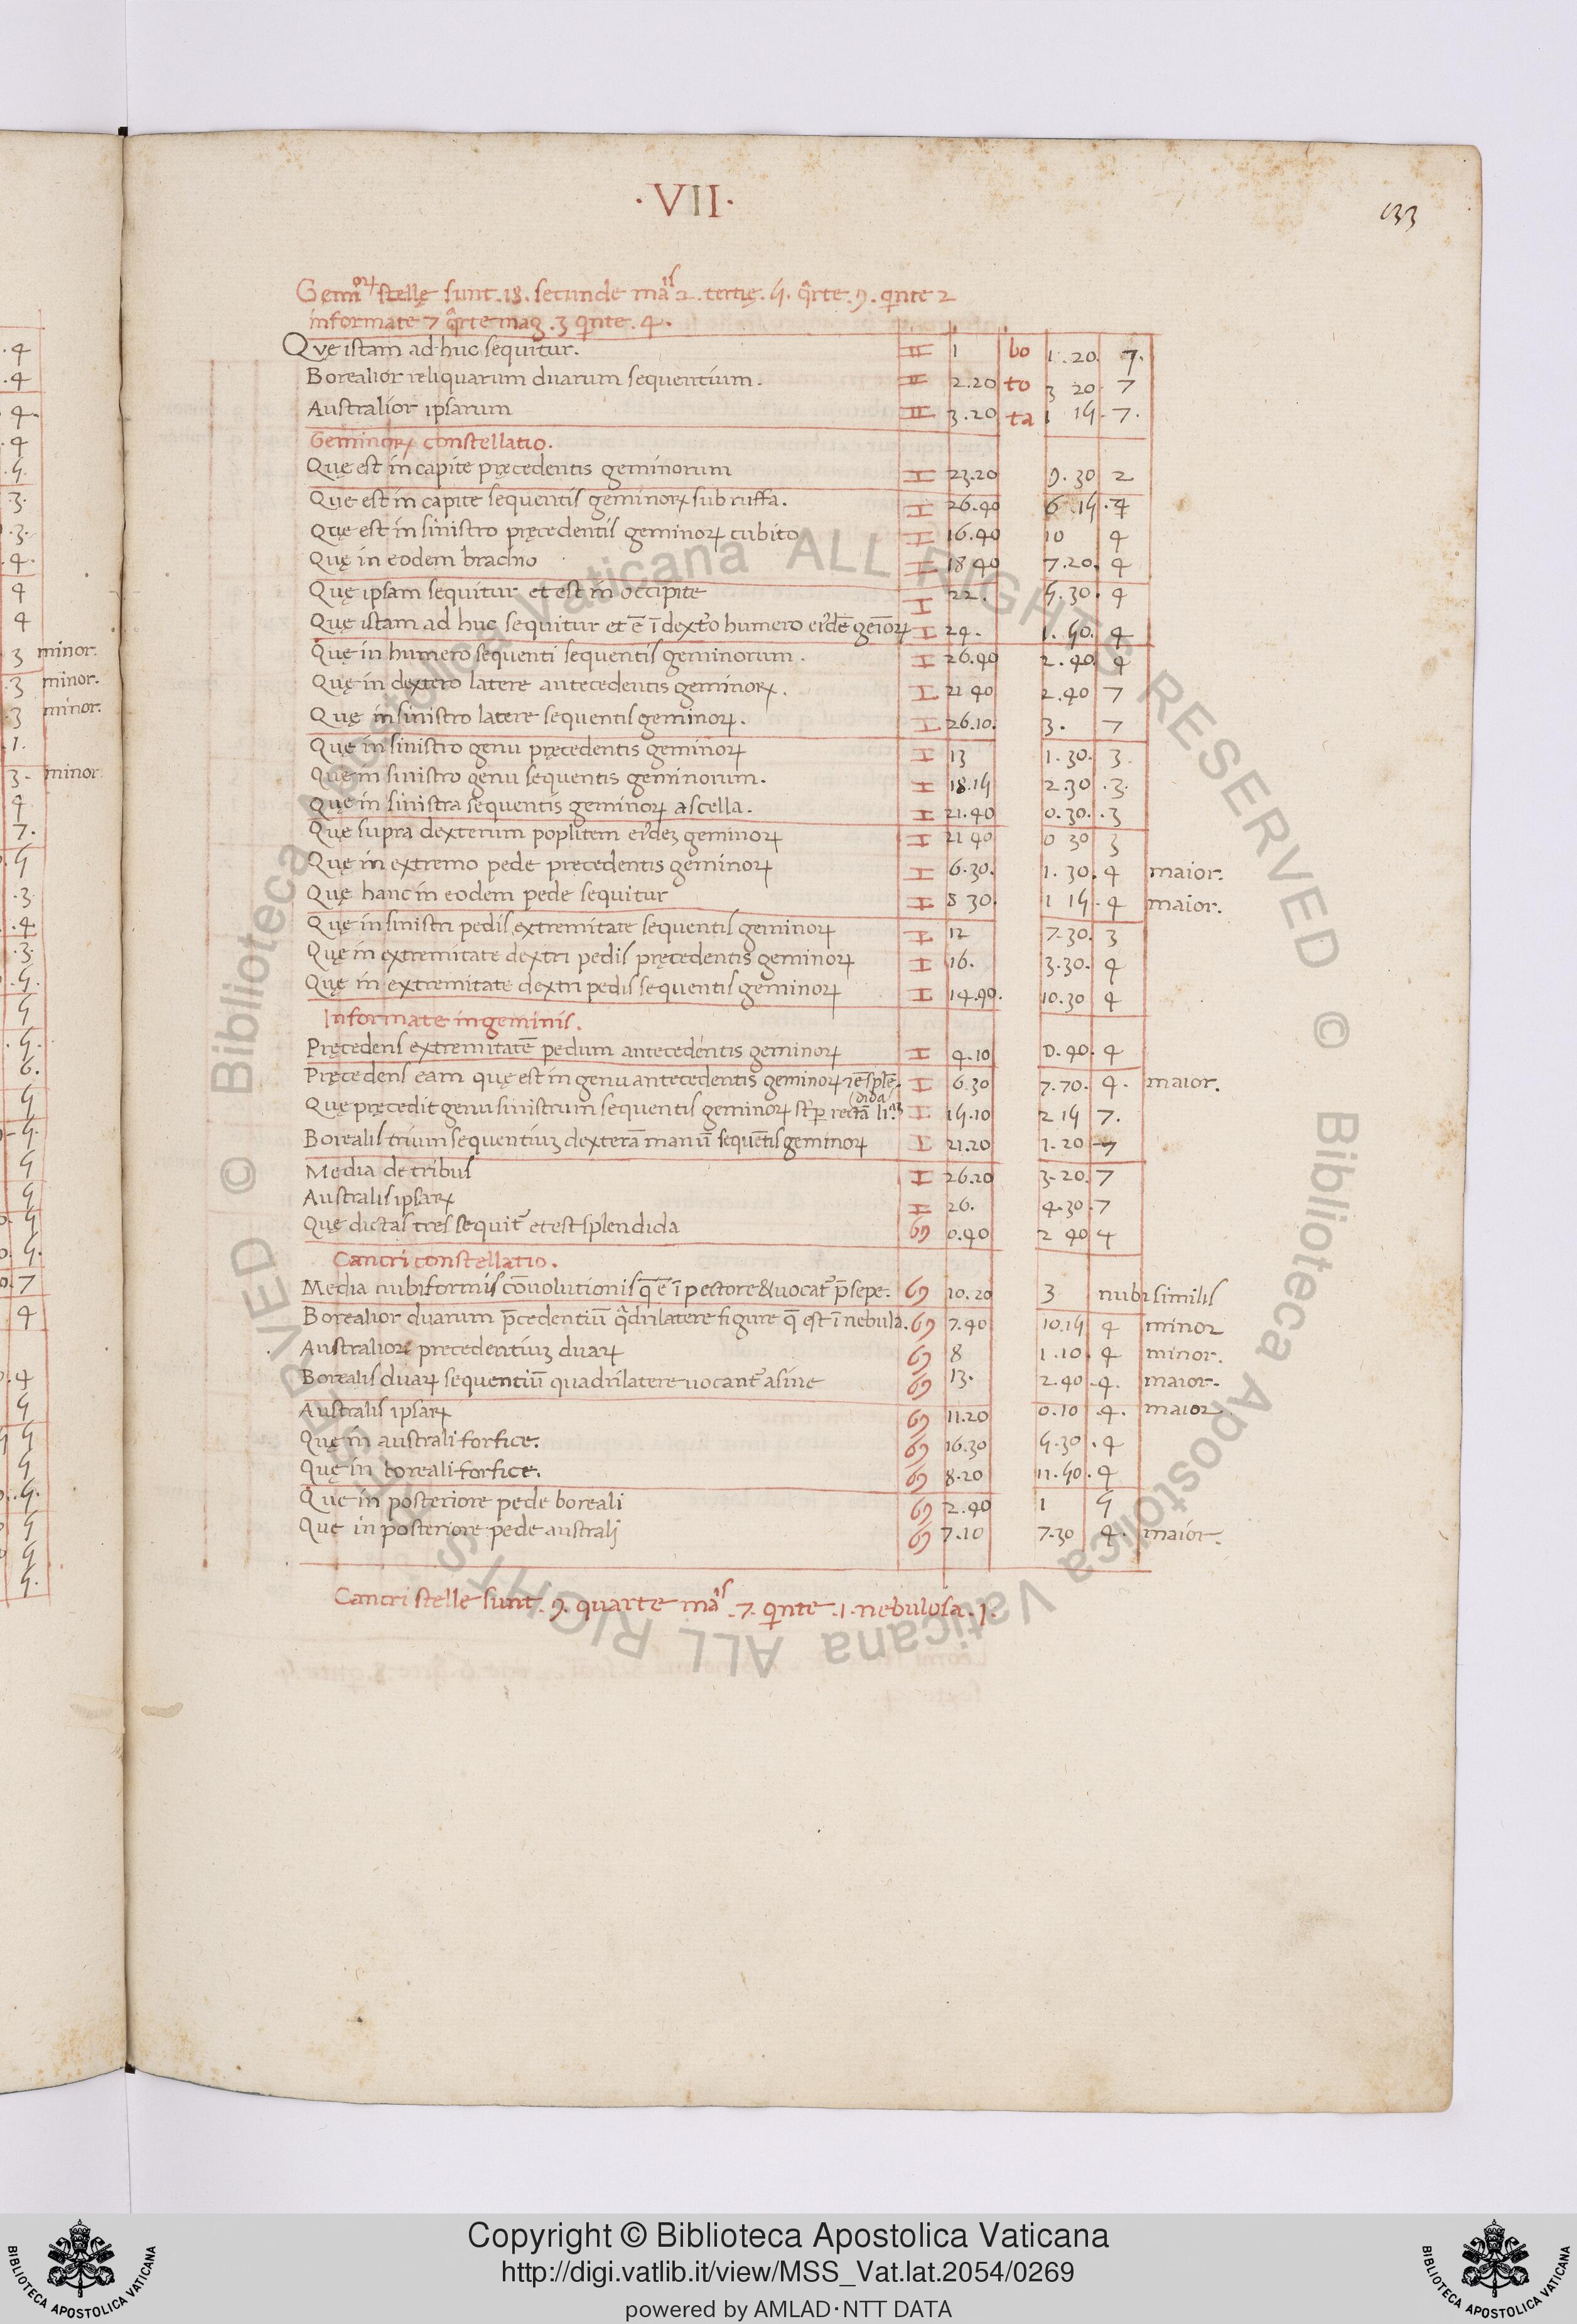 ·VII·
133
Geminoꝝ stellę sunt .18. secunde maᵍⁱˢ 2. tertię .5. qͣrte .9. qͥnte 2
informate 7 qͣrte mag .3 qͥnte .4.
Qvę istam ad huc sequitur. II 1 bo 1.20 7.
Borealior reliquarum duarum sequentium. II 2.20 to 3 20 7
Australior ipsarum II 3.20 ta 1 15 .7.
Geminoꝝ constellatio.
Quę est in capite pręcedentis geminorum II 23.20 9.30 2
Que est in capite sequentis geminoꝝ sub ruffa. II 26.40 6.15
Que est in sinistro pręcedentis geminoꝝ cubito II 16.40 10 4
Quę in eodem brachio II 18 40 7.20. 4
Quę ipsam sequitur et est in occipite II 22. 5.30. 4
Quę istam ad huc sequitur et ē ī dext̄o humero eiꝰdē geīoꝝ II 24. 1.50. 4
Quę in humero sequenti sequentis geminorum. II 26.40 2.40 4
Quę in dextero latere antecedentis geminoꝝ. II 21 40 2.40 7
Quę in sinistro latere sequentis geminoꝝ. II 26.10. 3. 7
Que in sinistro genu pręcedentis geminoꝝ II 13 1.30. 3.
Que in sinistro genu sequentis geminorum. II 18.15 2.30 .3.
Que in sinistra sequentis geminoꝝ ascella. II 21.40 0.30. .3
Que supra dexterum poplitem eiꝰdeꝫ geminoꝝ II 21 40 0 30 3
Que in extremo pede precedentis geminoꝝ II 6.30. 1.30. 4 maior.
Quę hanc in eodem pede sequitur II 8 30. 1 15 .4 maior.
Que in sinistri pedis extremitate sequentis geminoꝝ II 12 7.30. 3
Quę in extremitate dextri pedis pręcedentis geminoꝝ II 16. 3.30. 4
Quę in extremitate dextri pedis sequentis geminoꝝ II 14.40. 10.30 4
Informate in geminis.
Pręcedens extremitatē pedum antecedentis geminoꝝ II 4.10 0.40. 4
Pręcedens eam quę est in genu antecedentis geminoꝝ ⁊ ē splē. II 6.30 4. maior.
dida
Que pręcedit genu sinistrum sequentis geminoꝝ sꝑ rectā II 15.10 2 15 7.
Borealis trium sequentiuꝫ dexterā manū sequētis geminoꝝ II 21.20 1.20 7
Media de tribus II 26.20 3.20. 7
Australis ipsaꝝ II 26. 4.30. 7
Quę dictas tres sequit᷑ et est splendida ♋ 0.40 2 40 4
Cancri constellatio.
Media nubiformis cōuolutionis q̄ ē ī pectore & uocat᷑ p̄sepe. ♋ 10.20 3 nubi similis
Borealior duarum p̄cedentiū qͣdrilatere figure q̄ est ī nebula. ♋ 7.40 10.15 4 minor
Australiori precedentiuꝫ duaꝝ ♋ 8 1.10. 4 minor.
Borealis duaꝝ sequentiū quadrilatere uocant᷑ asine ♋ 13. 2.40 .4. maior.
Australis ipsaꝝ ♋ 11.20 0.10 .4. maior
Quę in australi forfice. ♋ 16.30 5.30 .4
Quę in boreali forfice. ♋ 8.20 11.50 .4
Que in posteriore pede boreali ♋ 2.40 1 5
Que in posteriore pede australi ♋ 7.10 7.30 4. maior.
Cancri stelle sunt .9. quarte maᵍⁱˢ .7. qͥnte .1. nebulosa .1.
.4
.4
4.
.4
.5.
3.
.3.
.4.
4
4
3 minor.
.3 minor.
.3 minor.
.1.
3. minor
4
7.
5
.3.
.4
.3.
.5.
5
.5.
6.
5
5.
5
5
5
5.
7
4
.4
5
5
5
.5.
5
5
5.
Copyright © Biblioteca Apostolica Vaticana
http://digi.vatlib.it/view/MSS_Vat.lat.2054/0269
powered by AMLAD·NTT DATA
BIBLIOTECA APOSTOLICA VATICANA
BIBLIOTECA APOSTOLICA VATICANA
© Biblioteca Apostolica Vaticana ALL RIGHTS RESERVED
© Biblioteca Apostolica Vaticana ALL RIGHTS RESERVED